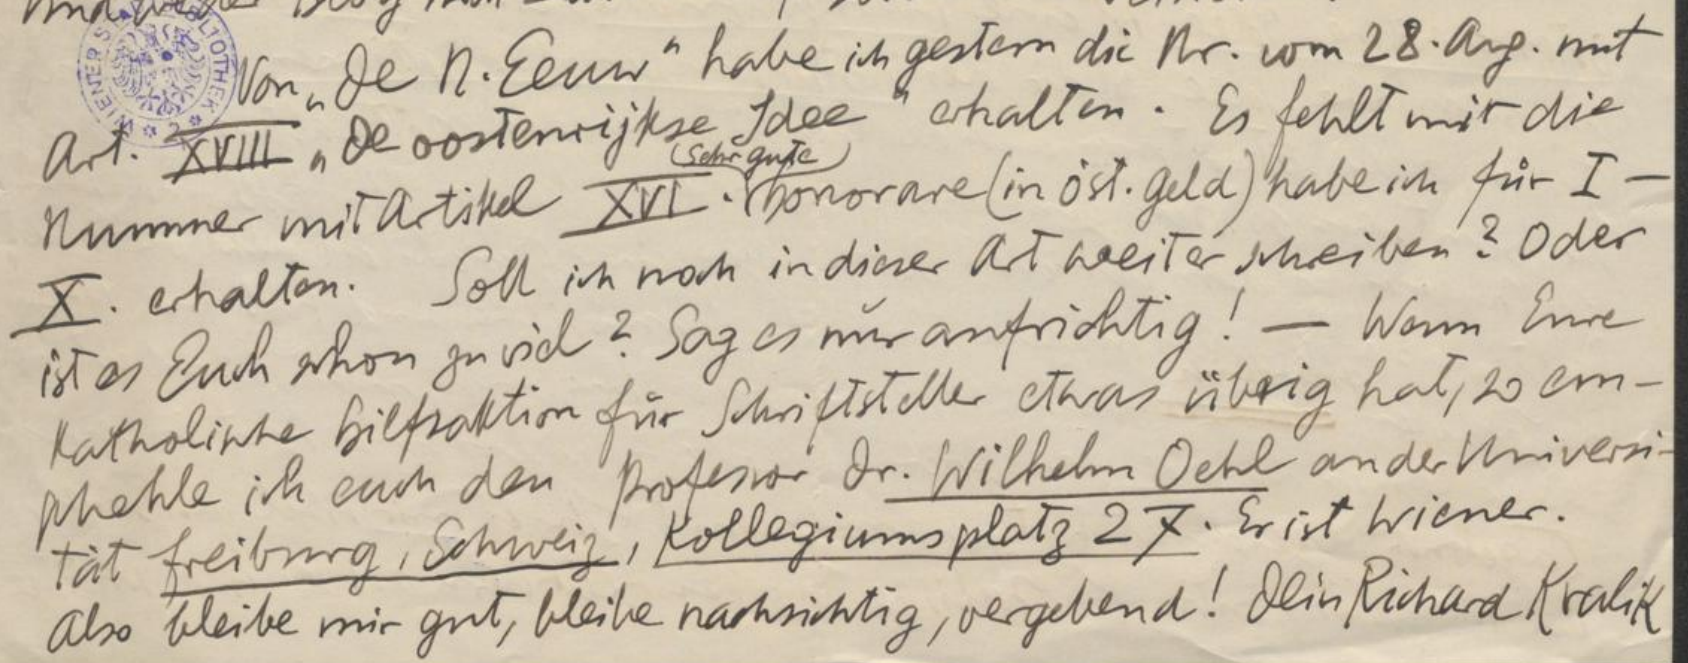 Von „De N. Eeuw" habe ich gestern die Nr. vom 28. Aug. mit
Art. XVIII „De oostenrijkse Idee" erhalten. Es fehlt mir die
(Sehr gute)
Nummer mit Artikel XVI. Honorare (in öst. Geld) habe ich für I –
X. erhalten. Soll ich noch in dieser Art weiter schreiben? Oder
ist es Euch schon zu viel? Sag es nur aufrichtig! — Wenn Eure
Katholische Hilfsaktion für Schriftsteller etwas übrig hat, so em-
pfhehle ich euch den Professor Dr. Wilhelm Oehl an der Universi-
tät Freiburg, Schweiz, Kollegiumsplatz 27. Er ist Wiener.
Also bleibe mir gut, bleibe nachsichtig, vergebend! Dein Richard Kralik